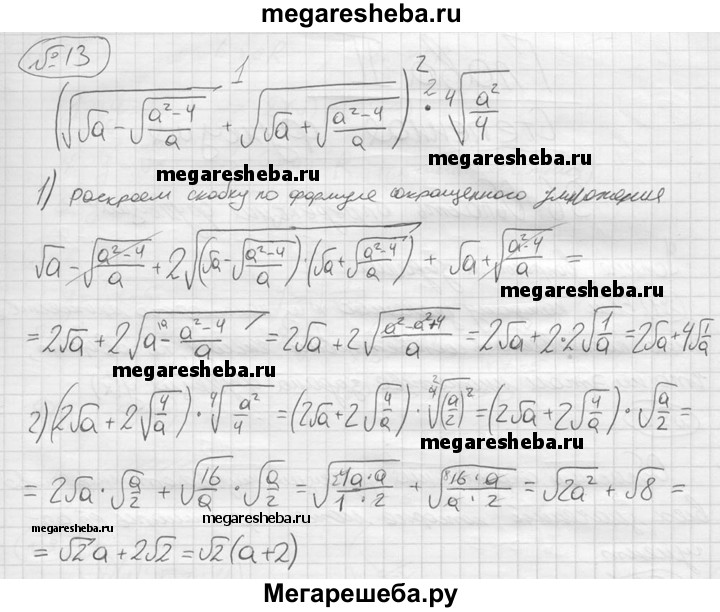 megaresheba.ru
№ 13
(√(√a - √((a²-4)/a)) + √(√a + √((a²-4)/a)))² · ⁴√(a²/4)
1
2
megaresheba.ru
1) раскроем скобку по формуле сокращенного умножения
√a - √((a²-4)/a) + 2√((√a - √((a²-4)/a))·(√a + √((a²-4)/a))) + √a + √((a²-4)/a) =
megaresheba.ru
= 2√a + 2√(a - (a²-4)/a) = 2√a + 2√((a²-a²+4)/a) = 2√a + 2·2√(1/a) = 2√a + 4√(1/a)
megaresheba.ru
2) (2√a + 2√(4/a)) · ⁴√(a²/4) = (2√a + 2√(4/a)) · ⁴√((a/2)²) = (2√a + 2√(4/a)) · √(a/2) =
megaresheba.ru
= 2√a · √(a/2) + √(16/a) · √(a/2) = √((4a·a)/(1·2)) + √((16·a)/(a·2)) = √(2a²) + √8 =
megaresheba.ru
megaresheba.ru
= √2a + 2√2 = √2(a+2)
Мегарешеба.ру